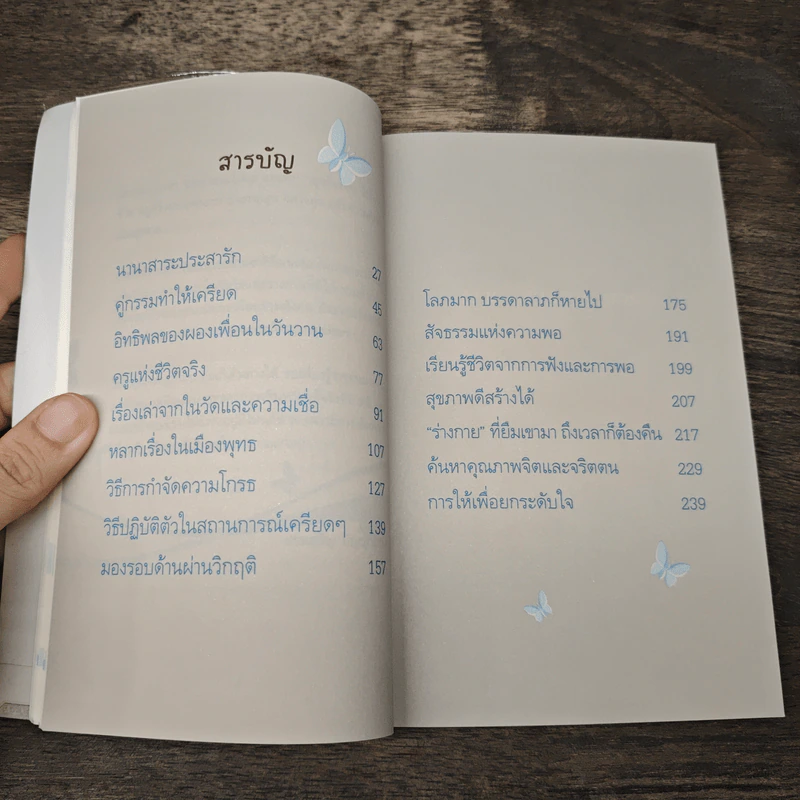 สารบัญ
นานาสาระประสารัก 27
คู่กรรมทำให้เครียด 45
อิทธิพลของผองเพื่อนในวันวาน 63
ครูแห่งชีวิตจริง 77
เรื่องเล่าจากในวัดและความเชื่อ 91
หลากเรื่องในเมืองพุทธ 107
วิธีการกำจัดความโกรธ 127
วิธีปฏิบัติตัวในสถานการณ์เครียดๆ 139
มองรอบด้านผ่านวิกฤติ 157
โลภมาก บรรดาลาภก็หายไป 175
สัจธรรมแห่งความพอ 191
เรียนรู้ชีวิตจากการฟังและการพอ 199
สุขภาพดีสร้างได้ 207
“ร่างกาย” ที่ยืมเขามา ถึงเวลาก็ต้องคืน 217
ค้นหาคุณภาพจิตและจริตตน 229
การให้เพื่อยกระดับใจ 239